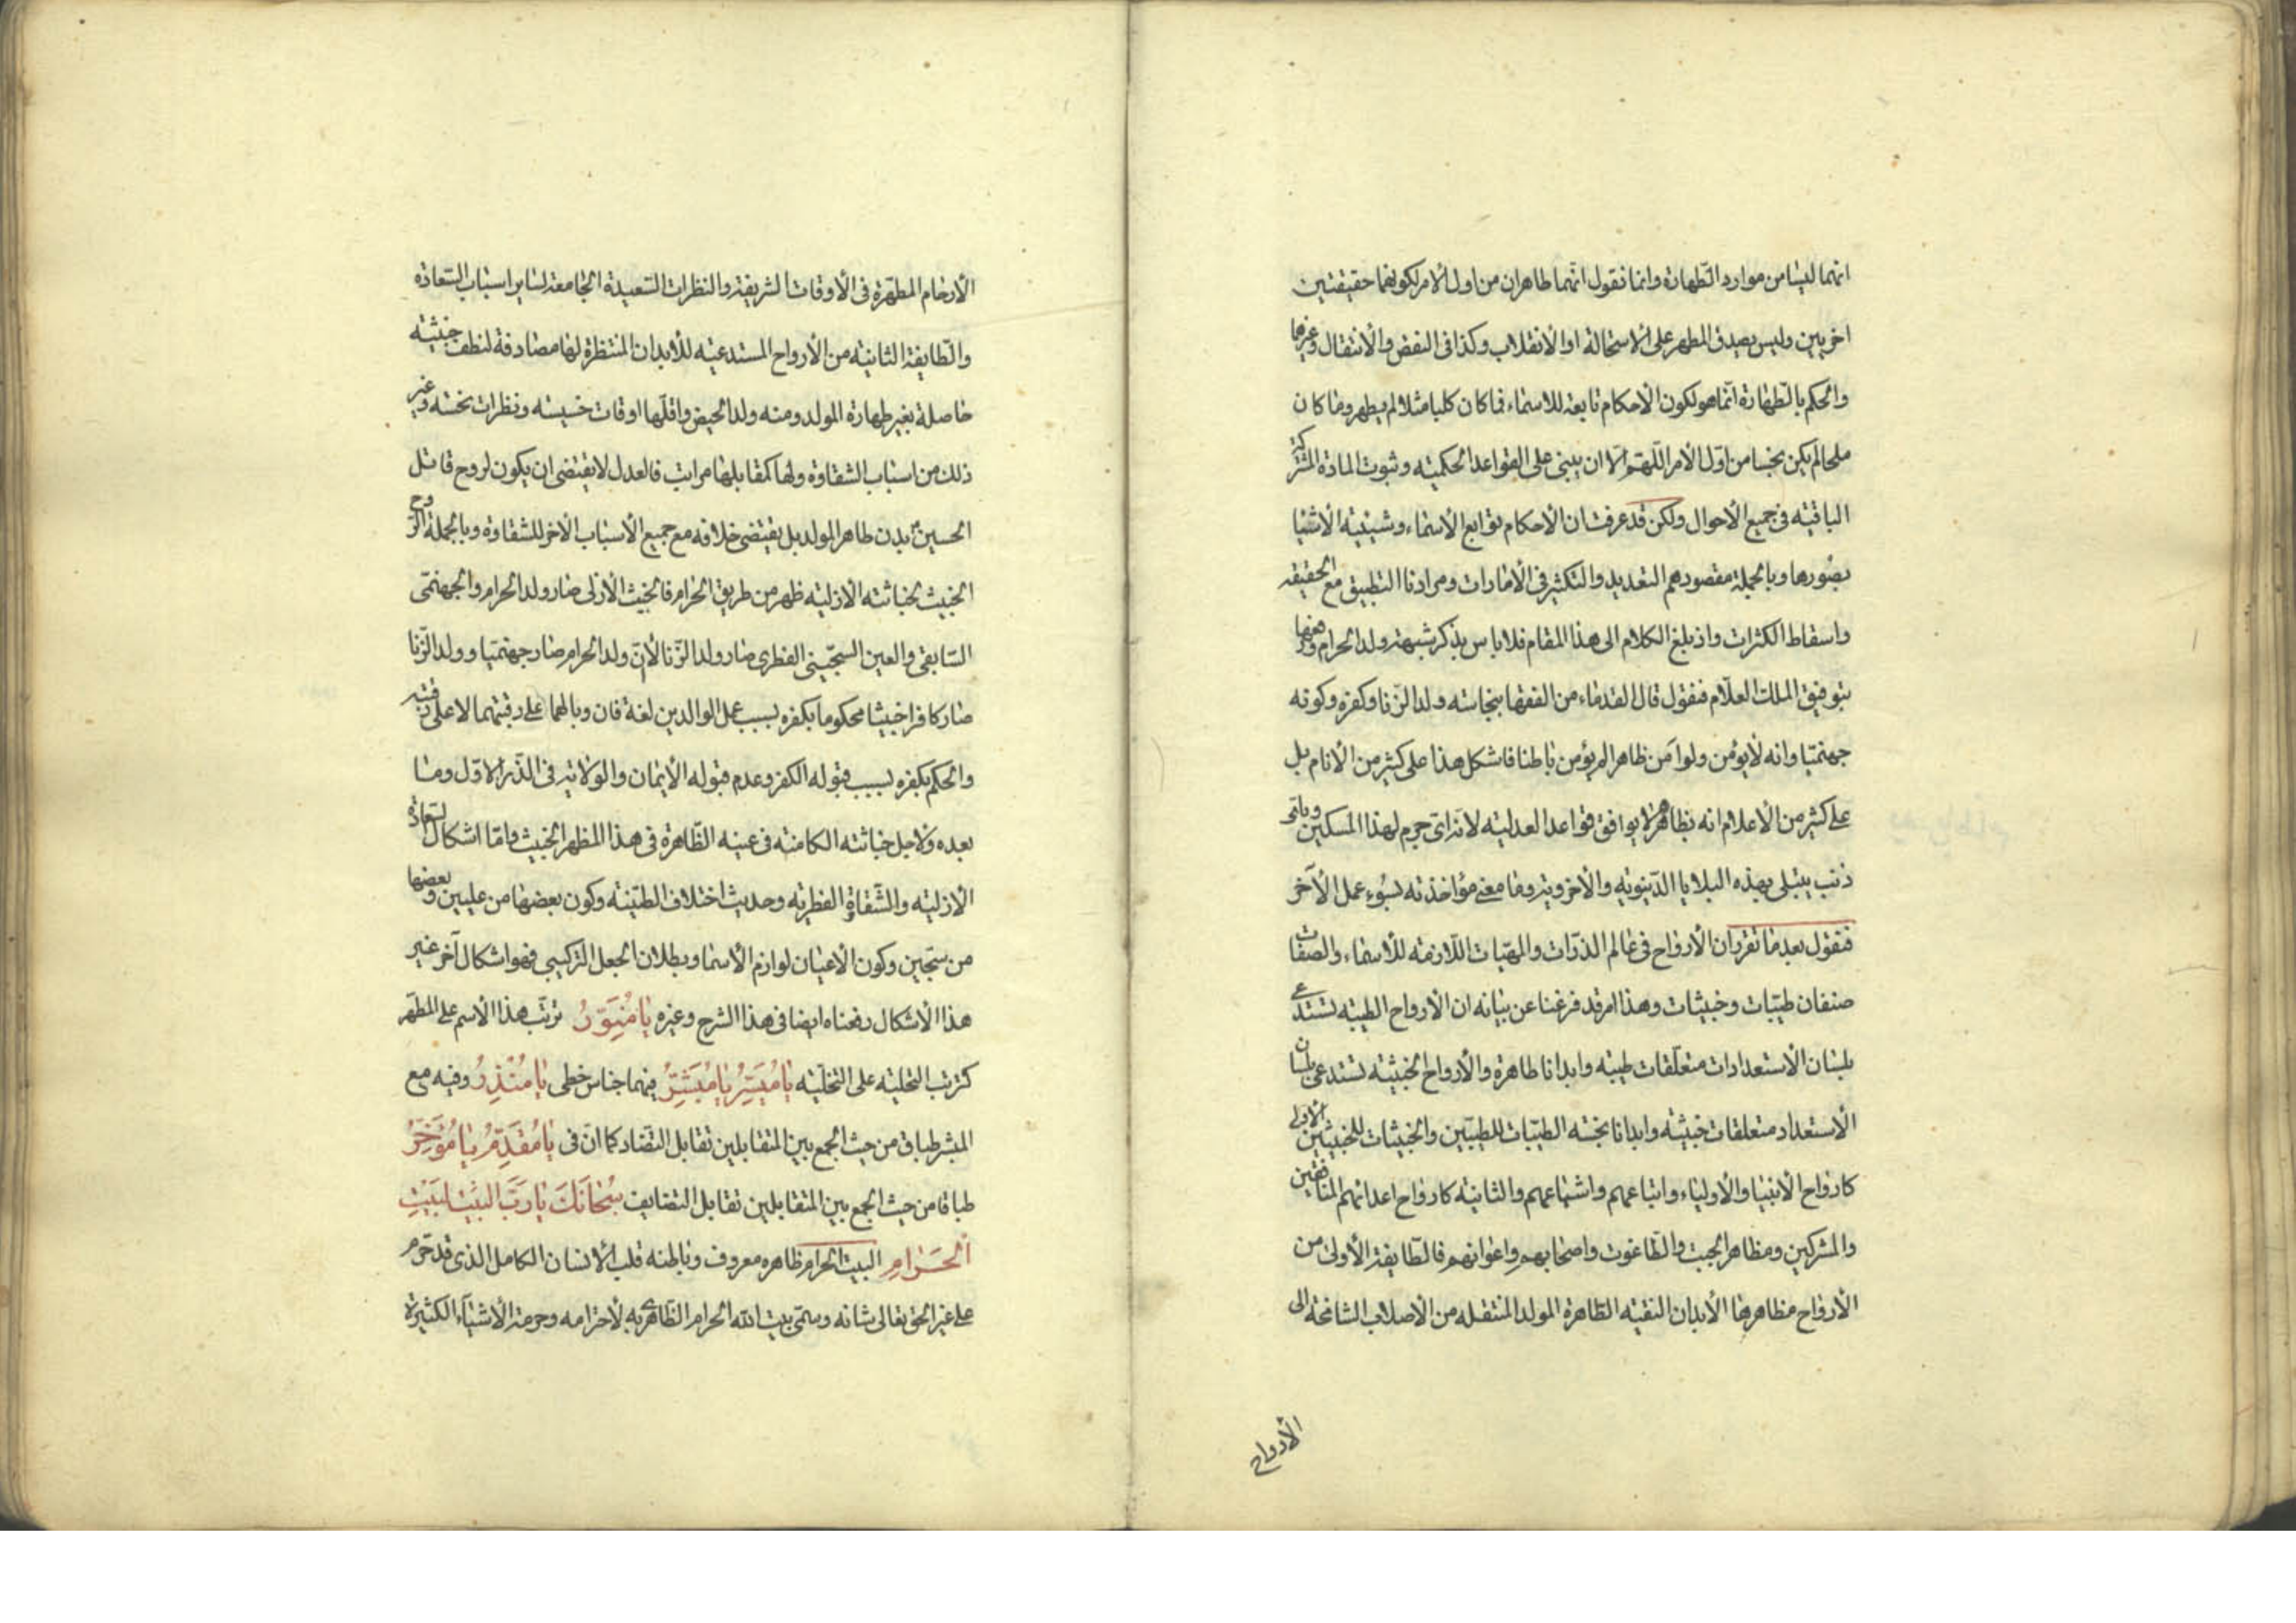 انهما ليسا من موارد الطهارة وانما نقول انهما طاهران من اول الامر لكونهما حقيقتين
اخريين وليس يصدق المطهر على الاستحالة او الانقلاب وكذا فى النقض والانتقال وغيرها
والحكم بالطهارة انما هو لكون الاحكام تابعة للاسماء فما كان كلبا مثلا لم يطهر وما كان
ملحا لم يكن نجسا من اول الامر اللهم الا ان يبنى على القواعد الحكمية وثبوت المادة المشتركة
الباقية فى جميع الاحوال ولكن قد عرفت ان الاحكام توابع الاسماء وشيئية الاشيا
بصورها وبالجملة مقصودهم التعديد والتكثير فى الامارات ومرادنا التطبيق مع الحقيقة
واسقاط الكثرات واذ بلغ الكلام الى هذا المقام فلا باس بذكر شبهة ولد الحرام ودفعها
بتوفيق الملك العلام فنقول قال القدماء من الفقها بنجاسة ولد الزنا وكفره وكونه
جهنميا وانه لا يؤمن ولو آمن ظاهرا لم يؤمن باطنا فاشكل هذا على كثير من الانام بل
على كثير من الاعلام انه بظاهره لا يوافق قواعد العدلية لانه اى جرم لهذا المسكين وباى
ذنب يبتلى بهذه البلايا الدينوية والاخروية وما معنى مؤاخذته بسوء عمل الآخر
فنقول بعد ما تقرر ان الارواح فى عالم الذرات والمهيات اللازمة للاسماء والصفات
صنفان طيبات وخبيثات وهذا امر قد فرغنا عن بيانه ان الارواح الطيبة تستدعى
بلسان الاستعدادات متعلقات طيبه وابدانا طاهرة والارواح الخبيثة تستدعى بلسان
الاستعداد متعلقات خبيثة وابدانا نجسة الطيبات للطيبين والخبيثات للخبيثين الاولى
كارواح الانبيا والاولياء واتباعهم واشياعهم والثانية كارواح اعدائهم المنافقين
والمشركين ومظاهر الجبت والطاغوت واصحابهم واعوانهم فالطايفة الاولى من
الارواح مظاهرها الابدان النقية الطاهرة المولد المنتقله من الاصلاب الشامخة الى
الارواح
الارحام المطهرة فى الاوقات الشريفة والنظرات السعيدة الجامعة لساير اسباب السعادة
والطايفة الثانية من الارواح المستدعية للابدان المنتظرة لها مصادفة لنطف خبيثه
حاصلة بغير طهارة المولد ومنه ولد الحيض واقلها اوقات خسيسه ونظرات نحسه وغير
ذلك من اسباب الشقاوة ولها كمقابلها مراتب فالعدل لا يقتضى ان يكون لروح قاتل
الحسين بدن طاهر المولد بل يقتضى خلافه مع جميع الاسباب الاخر للشقاوة وبالجملة الروح
الخبيث لخباثته الازلية ظهر من طريق الحرام فالخبيث الازلى صار ولد الحرام والجهنمى
السابقى والعين السجينى الفطرى صار ولد الزنا لا ان ولد الحرام صار جهنميا وولد الزنا
صار كافرا خبيثا محكوما بكفره بسبب عمل الوالدين لغة فان وبالهما على رقبتهما لا على رقبته
والحكم بكفره بسبب قبوله الكفر وعدم قبوله الايمان والولاية فى الذر الاول وما
بعده ولاجل خباثته الكامنة فى عينه الظاهرة فى هذا المظهر الخبيث واما اشكال السعادة
الازلية والشقاوة الفطرية وحديث اختلاف الطينة وكون بعضها من عليين وبعضها
من سجين وكون الاعيان لوازم الاسما وبطلان الجعل التركيبى فهو اشكال آخر غير
هذا الاشكال دفعناه ايضا فى هذا الشرح وغيره يا مُنَوِّرُ ترتب هذا الاسم على المطهر
كترتب التحلية على التخلية يا مُيَسِّرُ يا مُبَشِّرُ فيهما جناس خطى يا مُنْذِرُ وفيه مع
المبشر طباق من حيث الجمع بين المتقابلين تقابل التضاد كما ان فى يا مُقَدِّمُ يا مُؤَخِّرُ
طباقا من حيث الجمع بين المتقابلين تقابل التضايف سُبْحانَكَ يا رَبَّ البَيْتِ
الحَرامِ البيت الحرام ظاهره معروف وباطنه قلب الانسان الكامل الذى قد حرم
على غير الحق تعالى شانه وسمى بيت الله الحرام الظاهرى به لاحترامه وحرمة الاشياء الكثيرة